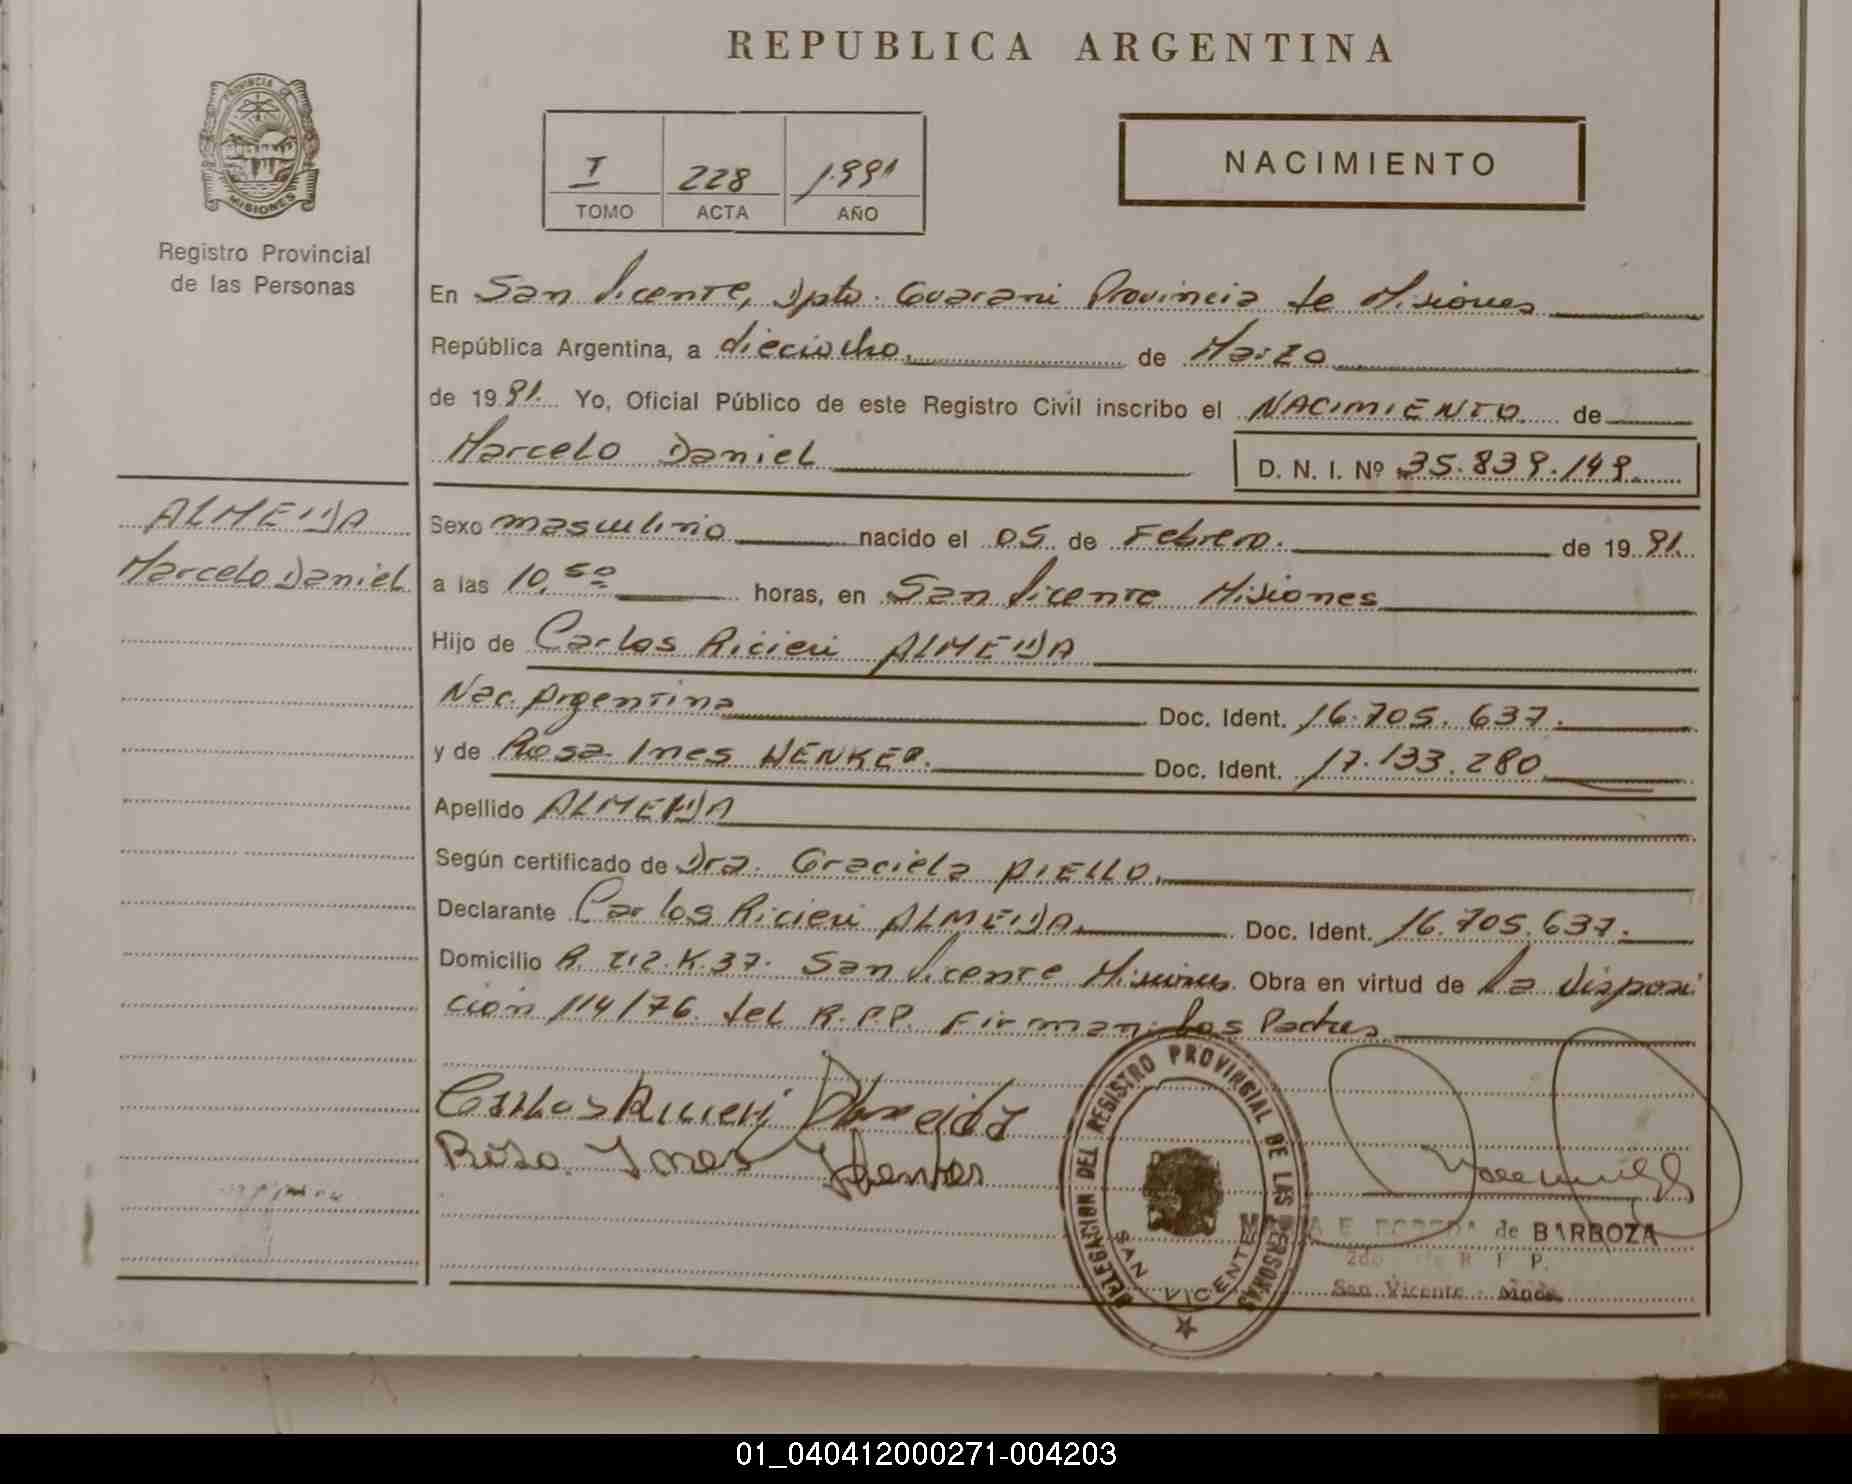 REPUBLICA ARGENTINA
PROVINCIA DE
MISIONES
Registro Provincial
de las Personas
I 228 1.991
TOMO ACTA AÑO
NACIMIENTO
En San Vicente, Dpto. Guarani Provincia de Misiones
República Argentina, a dieciocho. de Marzo
de 1991. Yo, Oficial Público de este Registro Civil inscribo el NACIMIENTO de
Marcelo Daniel
D. N. I. Nº 35.839.149
ALMEIDA
Marcelo Daniel
Sexo masculino nacido el 05 de Febrero. de 1991.
a las 10,50 horas, en San Vicente Misiones
Hijo de Carlos Ricieri ALMEIDA
Nac. Argentina Doc. Ident. 16.705.637.
y de Rosa Ines WENKER. Doc. Ident. 17.133.280
Apellido ALMEIDA
Según certificado de Dra. Graciela
Declarante Carlos Ricieri ALMEIDA. Doc. Ident. 16.705.637.
Domicilio R. K.37. San Vicente Misiones. Obra en virtud de La disposi
ción 114/76 del R.P.P. Firman los Padres
Carlos Ricieri Almeida
Rosa Ines
DELEGACION DEL REGISTRO PROVINCIAL DE LAS PERSONAS
SAN VICENTE
de BARBOZA
San Vicente
01_040412000271-004203